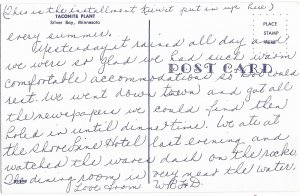 (This is the installment tw'nt put in up here)
TACONITE PLANT
Silver Bay, Minnesota
PLACE
STAMP
HERE
every summer.
Yesterday it rained all day and
we were so glad we had such warm
comfortable accommodations so
POST CARD
rest. We went down town and got all
the newspapers we could find then
holed in until dinnertime. We ate at
the Shoreline Hotel last evening and
watched the waves dash on the rocks.
The dining room is very near the water.
Love from